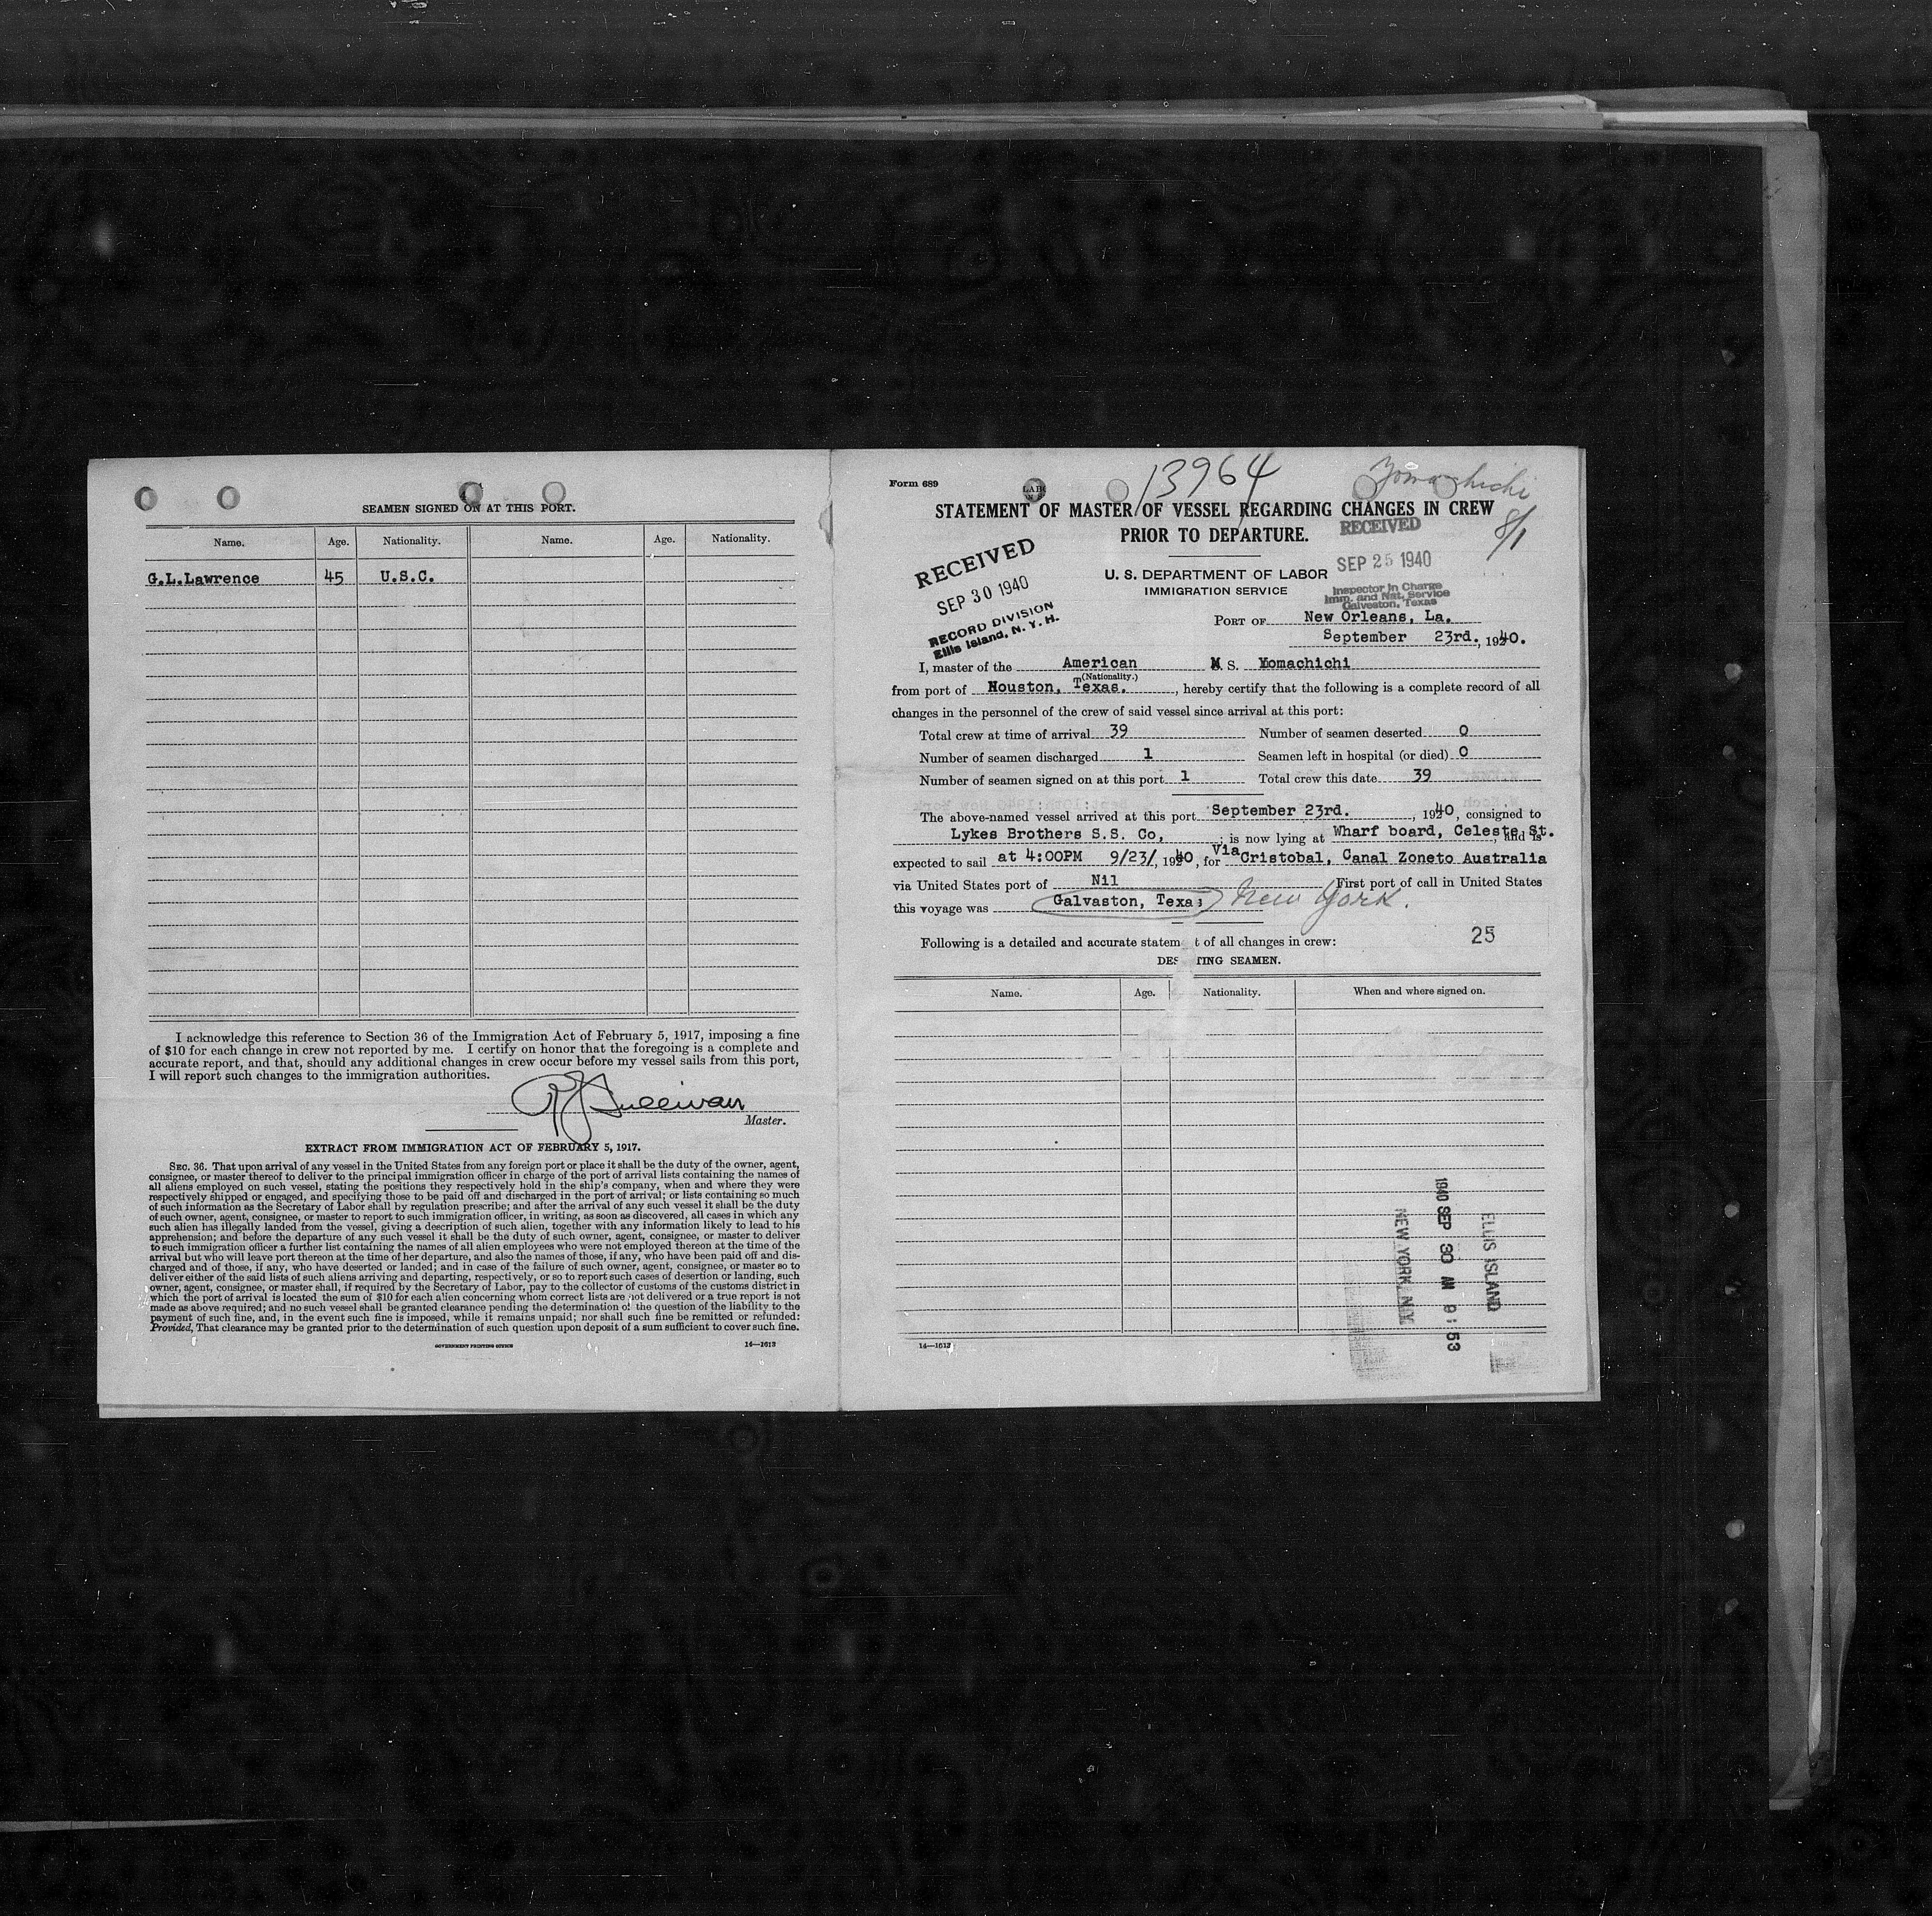 SEAMEN SIGNED ON AT THIS PORT.
Name. Age. Nationality. Name. Age. Nationality.
G.L.Lawrence 45 U.S.C.
I acknowledge this reference to Section 36 of the Immigration Act of February 5, 1917, imposing a fine
of $10 for each change in crew not reported by me. I certify on honor that the foregoing is a complete and
accurate report, and that, should any additional changes in crew occur before my vessel sails from this port,
I will report such changes to the immigration authorities.
RJ Sullivan
Master.
EXTRACT FROM IMMIGRATION ACT OF FEBRUARY 5, 1917.
SEC. 36. That upon arrival of any vessel in the United States from any foreign port or place it shall be the duty of the owner, agent,
consignee, or master thereof to deliver to the principal immigration officer in charge of the port of arrival lists containing the names of
all aliens employed on such vessel, stating the positions they respectively hold in the ship's company, when and where they were
respectively shipped or engaged, and specifying those to be paid off and discharged in the port of arrival; or lists containing so much
of such information as the Secretary of Labor shall by regulation prescribe; and after the arrival of any such vessel it shall be the duty
of such owner, agent, consignee, or master to report to such immigration officer, in writing, as soon as discovered, all cases in which any
such alien has illegally landed from the vessel, giving a description of such alien, together with any information likely to lead to his
apprehension; and before the departure of any such vessel it shall be the duty of such owner, agent, consignee, or master to deliver
to such immigration officer a further list containing the names of all alien employees who were not employed thereon at the time of the
arrival but who will leave port thereon at the time of her departure, and also the names of those, if any, who have been paid off and dis-
charged and of those, if any, who have deserted or landed; and in case of the failure of such owner, agent, consignee, or master so to
deliver either of the said lists of such aliens arriving and departing, respectively, or so to report such cases of desertion or landing, such
owner, agent, consignee, or master shall, if required by the Secretary of Labor, pay to the collector of customs of the customs district in
which the port of arrival is located the sum of $10 for each alien concerning whom correct lists are not delivered or a true report is not
made as above required; and no such vessel shall be granted clearance pending the determination of the question of the liability to the
payment of such fine, and, in the event such fine is imposed, while it remains unpaid; nor shall such fine be remitted or refunded:
Provided, That clearance may be granted prior to the determination of such question upon deposit of a sum sufficient to cover such fine.
GOVERNMENT PRINTING OFFICE 14—1613
Form 689
13964
Yomachichi
8/1
STATEMENT OF MASTER OF VESSEL REGARDING CHANGES IN CREW
PRIOR TO DEPARTURE.
RECEIVED
SEP 30 1940
RECORD DIVISION
Ellis Island, N. Y. H.
RECEIVED
SEP 25 1940
Inspector in Charge
Imm. and Nat. Service
Galveston, Texas
U. S. DEPARTMENT OF LABOR
IMMIGRATION SERVICE
PORT OF New Orleans, La.
September 23rd., 1940.
I, master of the American M. S. Yomachichi
(Nationality.)
from port of Houston, Texas., hereby certify that the following is a complete record of all
changes in the personnel of the crew of said vessel since arrival at this port:
Total crew at time of arrival 39 Number of seamen deserted 0
Number of seamen discharged 1 Seamen left in hospital (or died) 0
Number of seamen signed on at this port 1 Total crew this date 39
The above-named vessel arrived at this port September 23rd., 1940, consigned to
Lykes Brothers S.S. Co, ; is now lying at Wharf board, Celeste St., and is
expected to sail at 4:00PM 9/23/, 1940, for Via Cristobal, Canal Zoneto Australia
via United States port of Nil First port of call in United States
this voyage was Galvaston, Texas New York.
Following is a detailed and accurate statem t of all changes in crew:
25
DES TING SEAMEN.
Name. Age. Nationality. When and where signed on.
ELLIS ISLAND
1940 SEP 30 AM 9:53
NEW YORK, N.Y.
14—1613